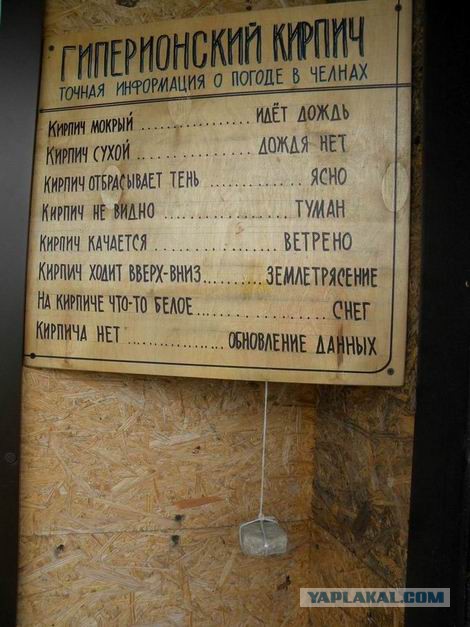 ГИПЕРИОНСКИЙ КИРПИЧ
ТОЧНАЯ ИНФОРМАЦИЯ О ПОГОДЕ В ЧЕЛНАХ
КИРПИЧ МОКРЫЙ ................ ИДЁТ ДОЖДЬ
КИРПИЧ СУХОЙ ................ ДОЖДЯ НЕТ
КИРПИЧ ОТБРАСЫВАЕТ ТЕНЬ ............ ЯСНО
КИРПИЧ НЕ ВИДНО ................ ТУМАН
КИРПИЧ КАЧАЕТСЯ ................ ВЕТРЕНО
КИРПИЧ ХОДИТ ВВЕРХ-ВНИЗ........ЗЕМЛЕТРЯСЕНИЕ
НА КИРПИЧЕ ЧТО-ТО БЕЛОЕ................СНЕГ
КИРПИЧА НЕТ ................ОБНОВЛЕНИЕ ДАННЫХ
YAPLAKAL.COM